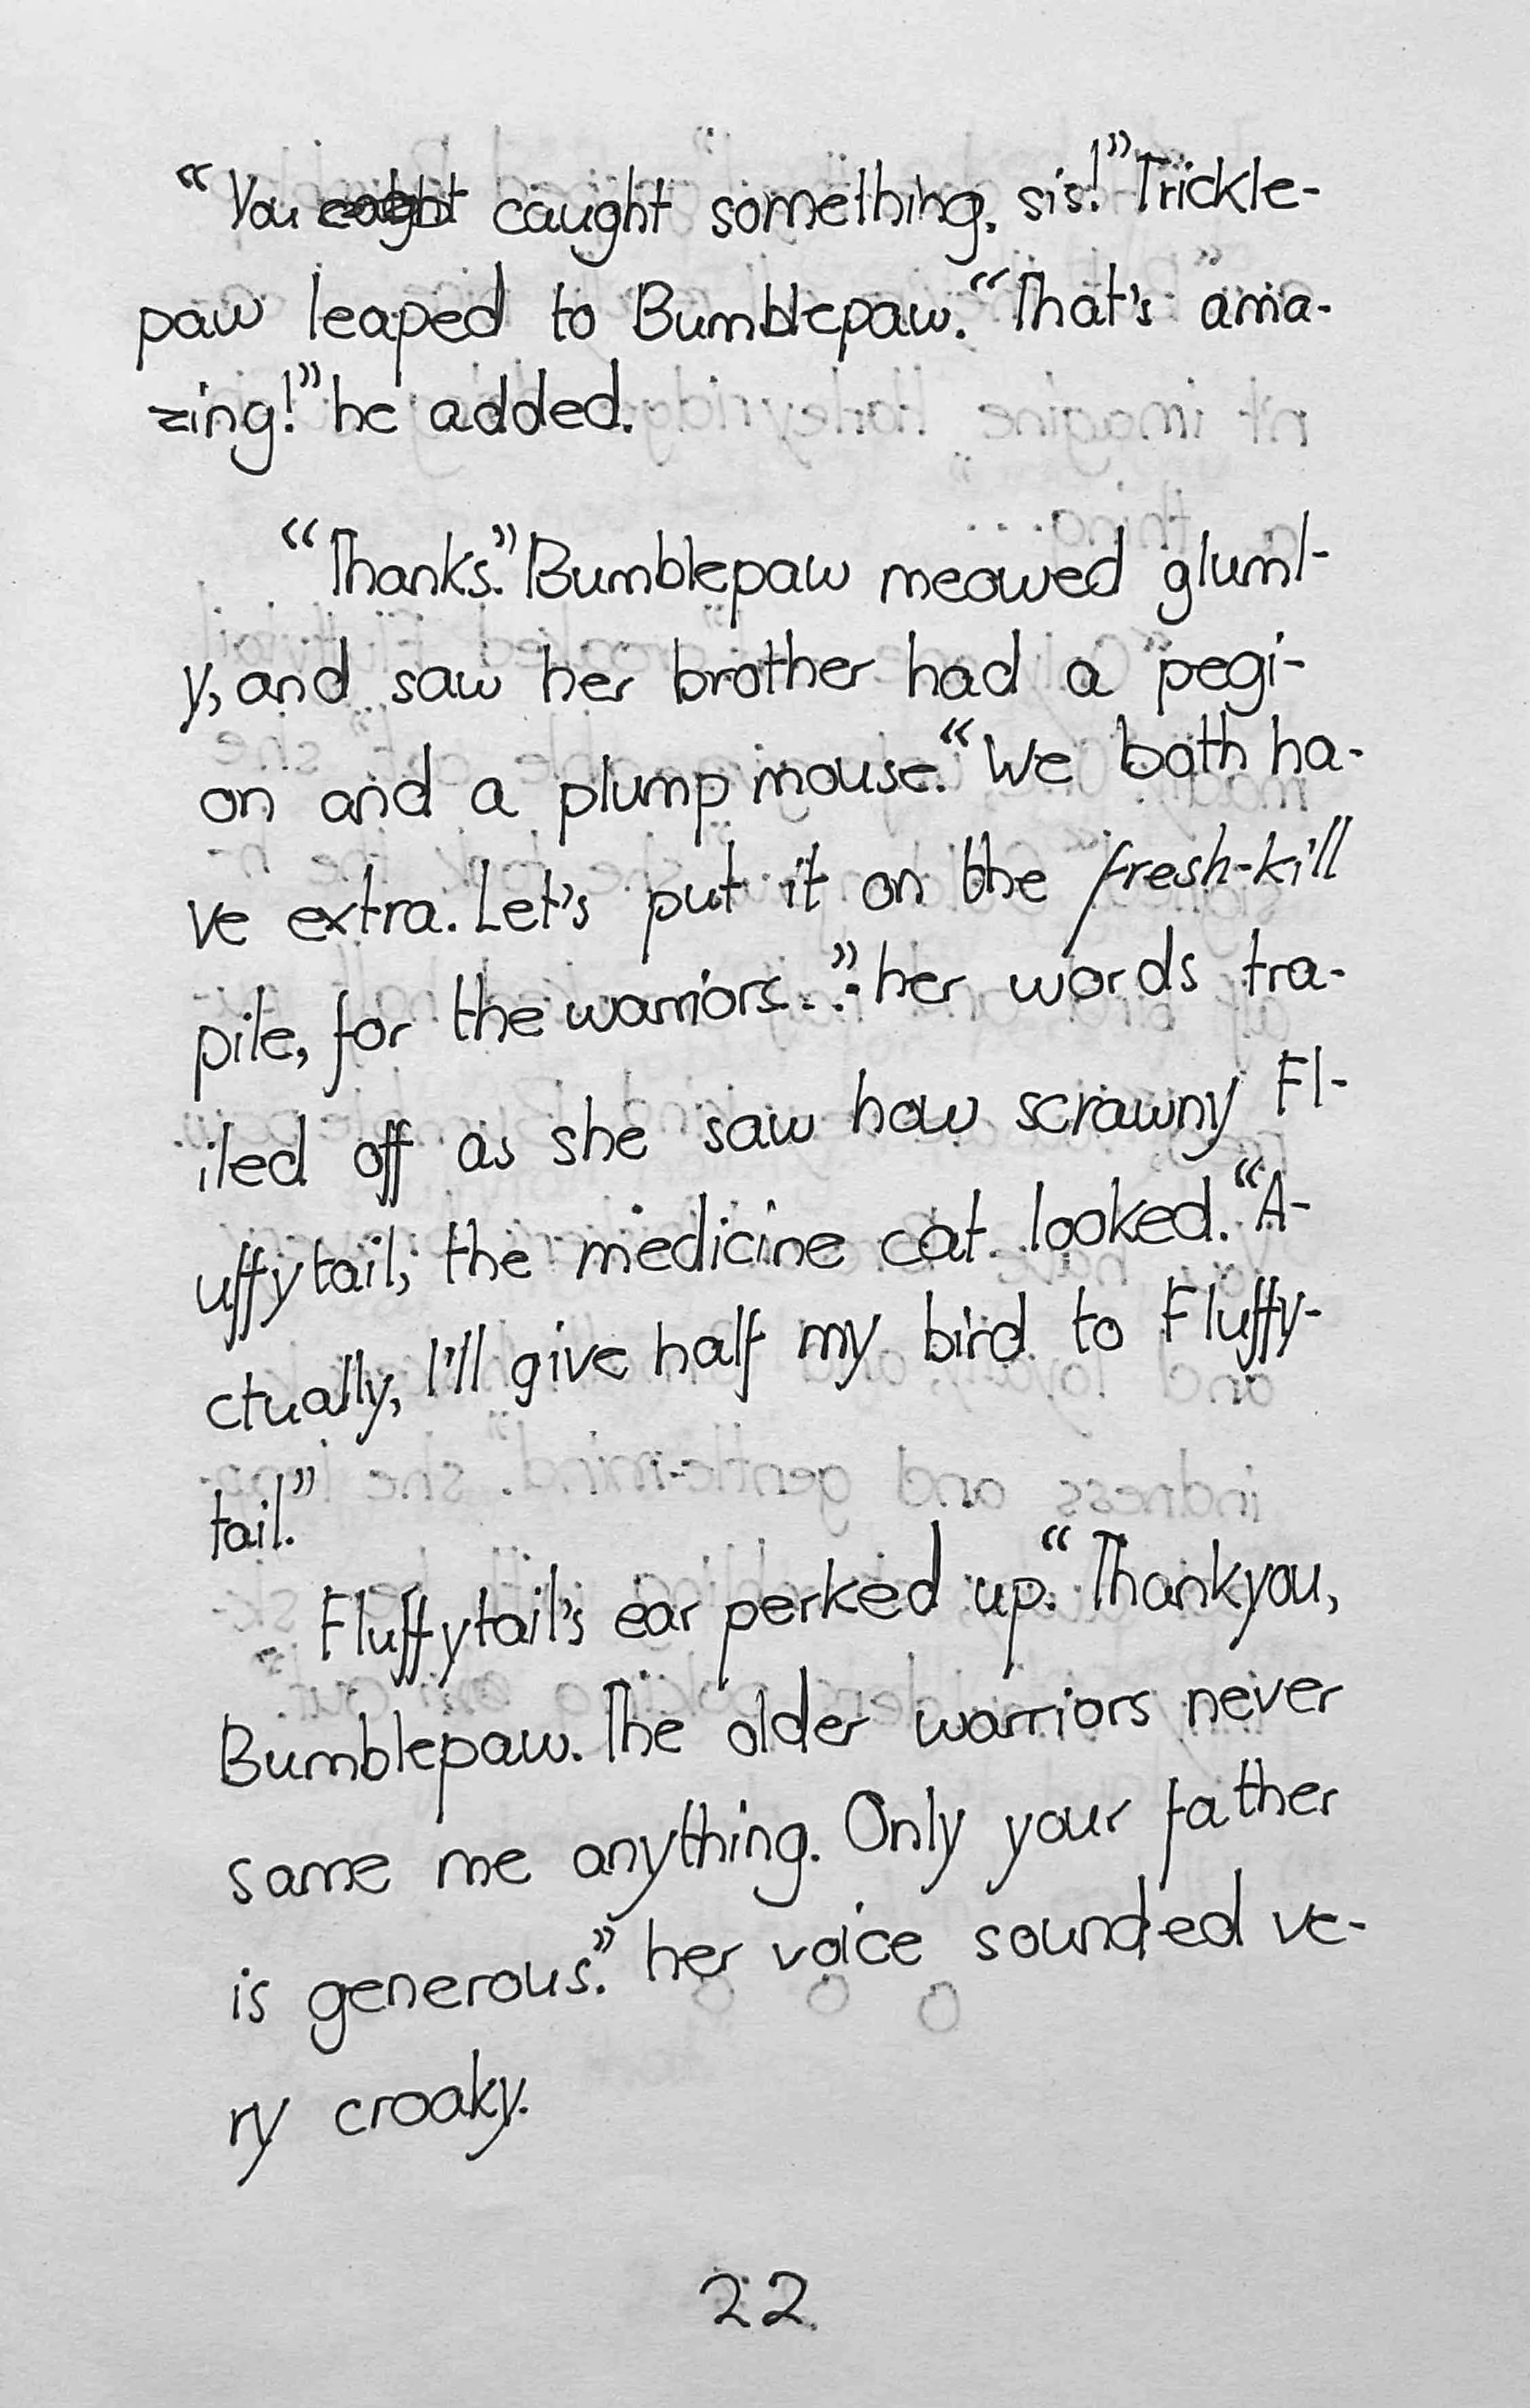 “You caught something, sis!” Trickle-
paw leaped to Bumblepaw. “That's ama-
zing!” he added.
“Thanks.” Bumblepaw meowed gluml-
y, and saw her brother had a pegi-
on and a plump mouse. “We both ha-
ve extra. Let's put it on the fresh-kill
pile, for the warriors...” her words tra-
iled off as she saw how scrawny Fl-
uffytail, the medicine cat looked. “A-
ctually, I'll give half my bird to Fluffy-
tail.”
Fluffytail's ear perked up. “Thankyou,
Bumblepaw. The older warriors never
same me anything. Only your father
is generous.” her voice sounded ve-
ry croaky.
22